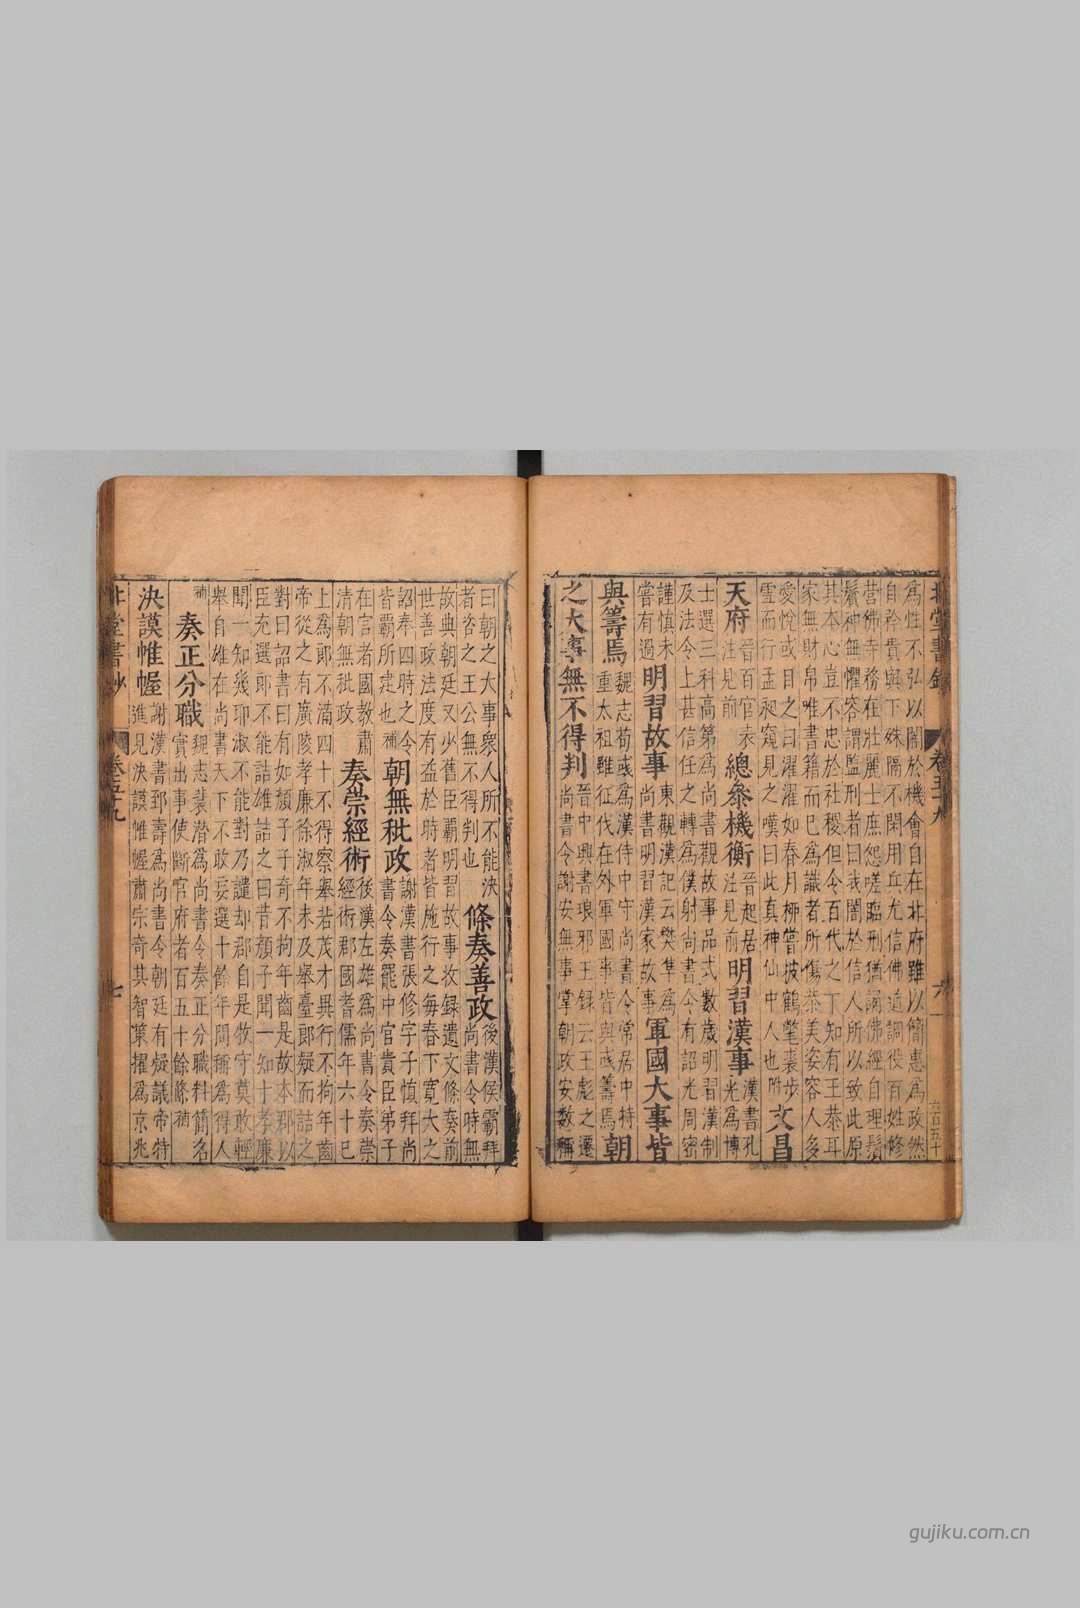 北堂書鈔
卷五十九
六
六百五十
爲性不弘以闇於機會自在北府雖以簡惠爲政然
自矜貴與下殊隔不閑用兵尤信佛道調役百姓修
營佛寺務在壯麗士庶怨嗟臨刑猶誦佛經自理鬚
鬢神無懼容謂監刑者曰我闇於信人所以致此原
其本心豈不忠於社稷但令百代之下知有王恭耳
家無財帛唯書籍而已爲識者所傷恭美姿容人多
愛悅或目之曰濯濯如春月柳嘗披鶴氅裘步
雪而行孟昶窺見之嘆曰此真神仙中人也附文昌
天府
晉百官表
注見前
總叅機衡
晉起居
注見前
明習漢事
漢書孔
光爲博
士選三科高第爲尚書觀故事品式數歲明習漢制
及法令上甚信任之轉爲僕射尚書令有詔光周密
謹慎未
嘗有過
明習故事
東觀漢記云樊準爲
尚書明習漢家故事
軍國大事皆
與籌焉
魏志荀彧爲漢侍中守尚書令常居中持
重太祖雖征伐在外軍國事皆與彧籌焉
朝
之大事無不得判
晉中興書琅邪王録云王彪之遷
尚書令謝安無事掌朝政安數稱
曰朝之大事衆人所不能決
者咨之王公無不得判也
條奏善政
後漢侯霸拜
尚書令時無
故典朝廷又少舊臣霸明習故事收録遺文條奏前
世善政法度有益於時者皆施行之每春下寬大之
詔奉四時之令
皆霸所定也補
朝無秕政
謝漢書張修字子慎拜尚
書令奏罷中官貴臣弟子
在言者國教肅
清朝無秕政
奏崇經術
後漢左雄爲尚書令奏崇
經術郡國耆儒年六十已
上爲郎不滿四十不得察舉若茂才異行不拘年齒
帝從之有廣陵孝廉徐淑年未及舉臺郎疑而詰之
對曰詔書曰有如顏子子奇不拘年齒是故本郡以
臣充選郎不能詰雄詰之曰昔顏子聞一知十孝廉
聞一知幾耶淑不能對乃譴却郡自是牧守莫敢輕
舉自雄在尚書天下不敢妄選十餘年間稱爲得人
補
奏正分職
魏志裴潛爲尚書令奏正分職料簡名
實出事使斷官府者百五十餘條補
決謨帷幄
謝漢書郅壽爲尚書令朝廷有疑議帝特
進見決謨帷幄肅宗奇其智策擢爲京兆
北堂書鈔
卷五十九
七
gujiku.com.cn